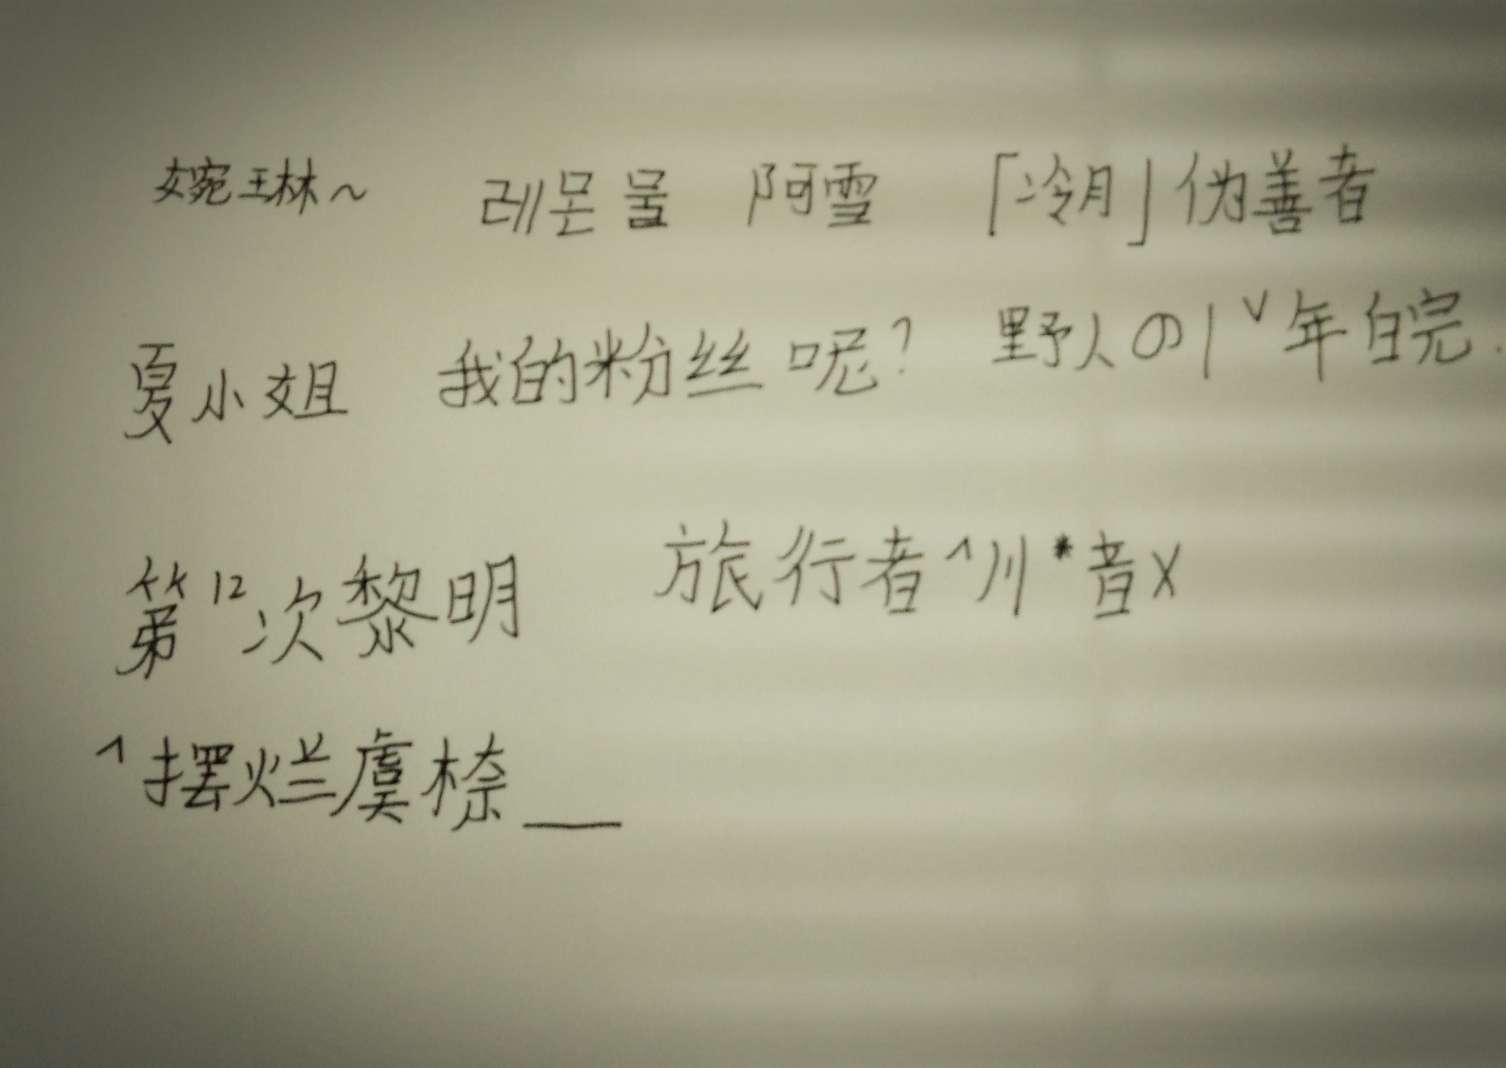 婉琳~ 레몬물 阿雪 「冷月」伪善者
夏小姐 我的粉丝呢? 野人の|ˇ年皖.
第12次黎明 旅行者^川*音X
^摆烂虞棕__